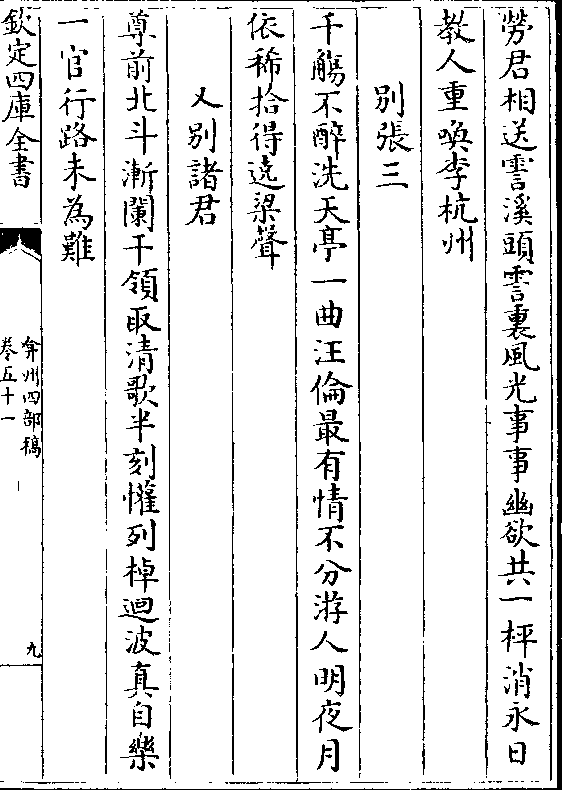 勞君相送霅溪頭霅裏風光事事幽欲共一枰消永日
教人重喚李杭州
別張三
千觴不醉洗天亭一曲汪倫最有情不分游人明夜月
依稀拾得遶梁聲
又別諸君
尊前北斗漸闌干領取清歌半刻懽列棹迴波真自樂
一官行路未為難
欽定四庫全書
弇州四部稿
卷五十一
九